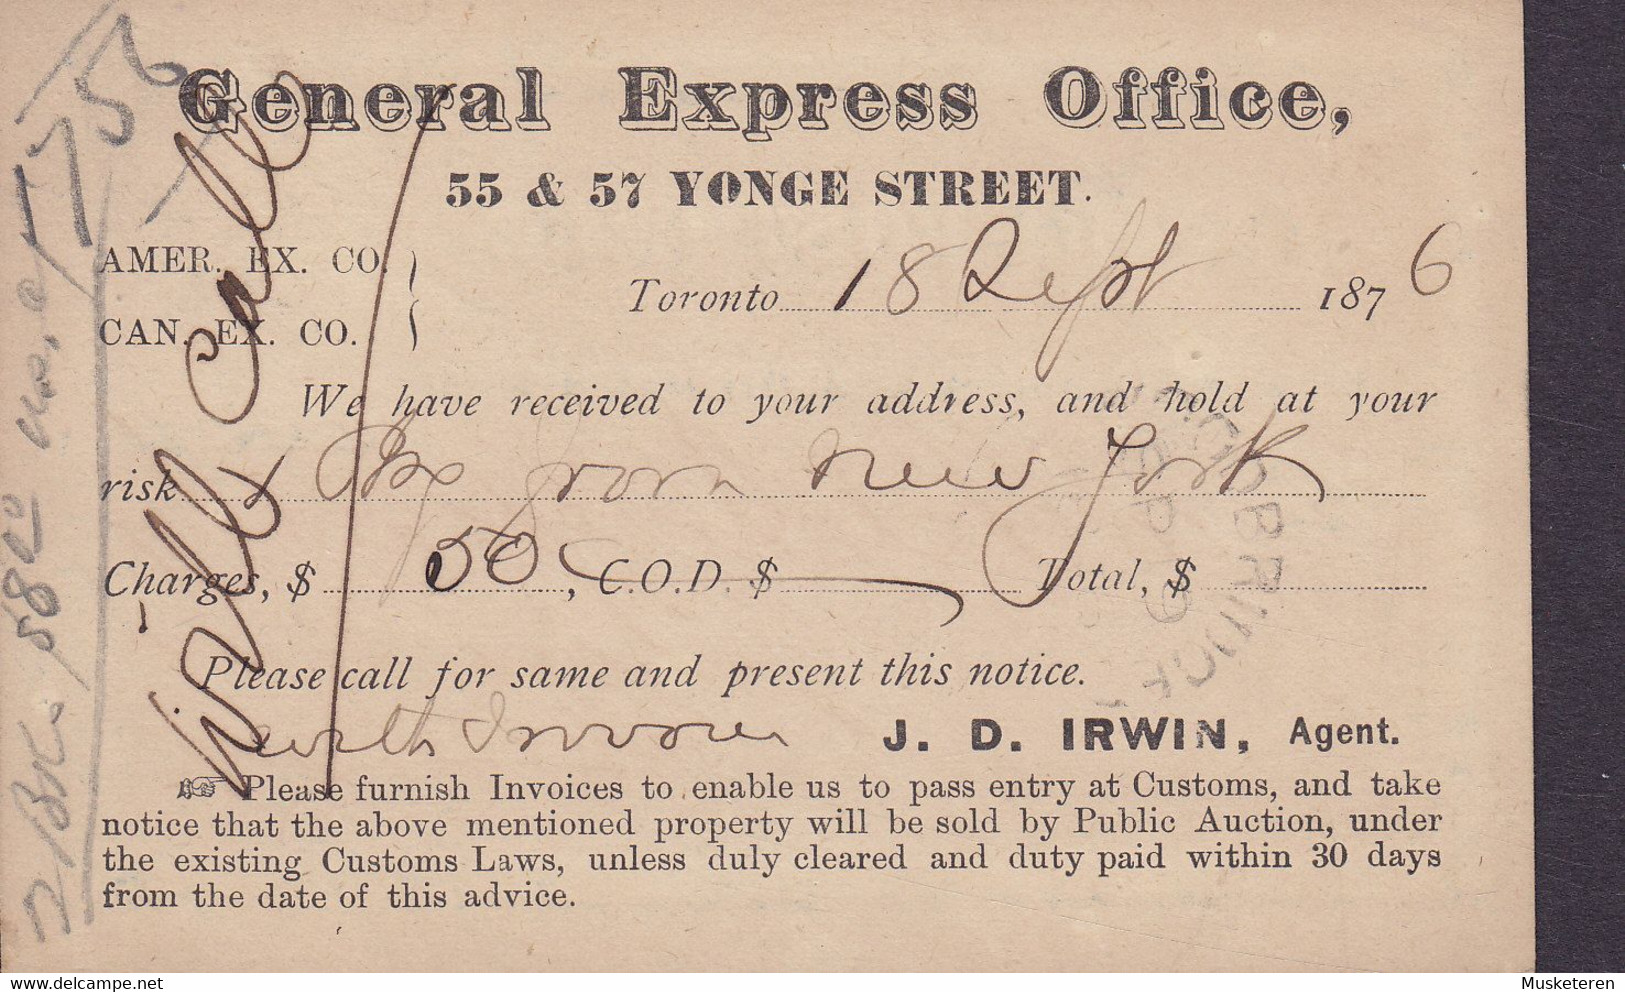 General Express Office,
55 & 57 YONGE STREET.
AMER. EX. CO.
CAN. EX. CO.
Toronto 18 Sept 1876
We have received to your address, and hold at your
risk 1 Pkg from New York
Charges, $ 50, C.O.D. $ Total, $
Please call for same and present this notice.
with Invoice J. D. IRWIN, Agent.
☞ Please furnish Invoices to enable us to pass entry at Customs, and take
notice that the above mentioned property will be sold by Public Auction, under
the existing Customs Laws, unless duly cleared and duty paid within 30 days
from the date of this advice.
Will Call
delcampe.net
Musketeren